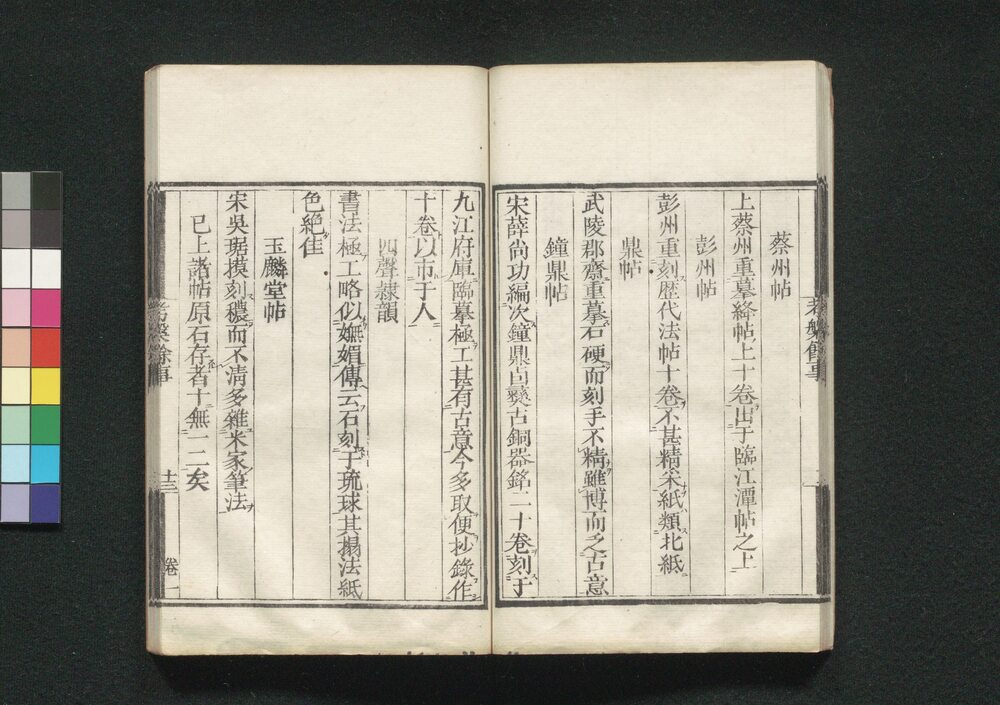 蔡州帖
上蔡州重摹絳帖上十卷出于臨江潭帖之上
彭州帖
彭州重刻歷代法帖十卷不甚精采紙類北紙
鼎帖
武陵郡齋重摹石硬而刻手不精雖博而乏古意
鐘鼎帖
宋薛尚功編次鐘鼎卣彝古銅器銘二十卷刻于
九江府庫臨摹極工甚有古意今多取便抄錄作
十卷以市于人
四聲隸韻
書法極工略似嫵媚傳云石刻于琉球其搨法紙
色絕佳
玉麟堂帖
宋吳琚摸刻穠而不清多雜米家筆法
已上諸帖原石存者十無一二矣
考槃餘事
十三
卷一